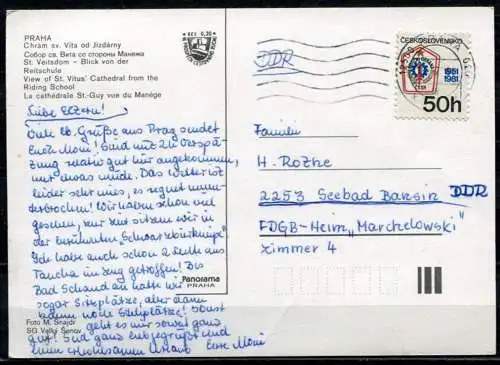 PRAHA
Chrám sv. Víta od Jízdárny
Собор св. Вита со стороны Манежа
St. Veitsdom – Blick von der
Reitschule
View of St. Vitus' Cathedral from the
Riding School
La cathédrale St.-Guy vue du Manége
Liebe Eltern!
Viele lb. Grüße aus Prag sendet
Euch Moni! Sind mit 2h Verspä-
tung relativ gut hier angekommen,
nur etwas müde. Das Wetter ist
leider sehr mies, es regnet unun-
terbrochen! Wir haben schon viel
gesehen, zur Zeit sitzen wir in
der berühmten
Ich hatte auch schon 2 Leute aus
Taucha im Zug getroffen! Bis
Bad Schandau hatten wir
sogar Sitzplätze, aber dann
kamen volle Stehplätze! Sonst
geht es mir soweit ganz
gut! Seid ganz lieb gegrüßt und
einen erholsamen Urlaub Eure Moni
Foto M. Šnajdr
SG Velký Šenov
Panorama
PRAHA
DDR
ČESKOSLOVENSKO
1951
1981
50h
Familie
H. Rothe
2253 Seebad Bansin DDR
FDGB-Heim „Marchelowski"
Zimmer 4